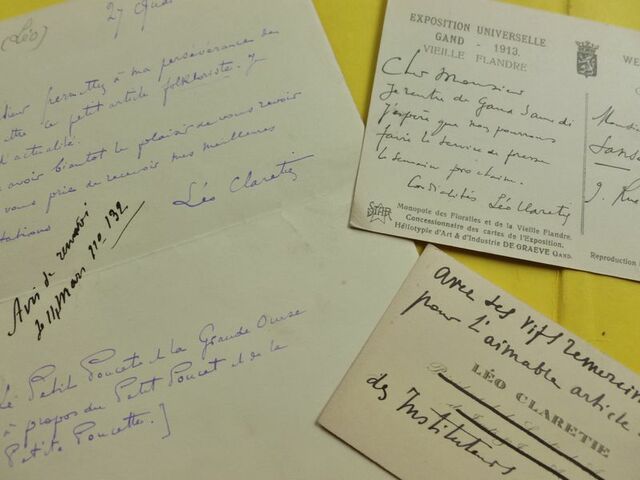 (Léo)
27 Quai
permettez à ma persévérance de
ce petit article folkloriste. Il
d'actualité.
avoir bientôt le plaisir de vous revoir
vous prie de recevoir mes meilleures
Léo Claretie
Avis de renvoi
le 14 Mars no 132
Le Petit Poucet et la Grande Ourse
à propos du Petit Poucet et de la
Petite Poucette.]
EXPOSITION UNIVERSELLE
GAND - 1913.
VIEILLE FLANDRE
Cher Monsieur
Je rentre de Gand Samedi
J'espère que nous pourrons
faire le service de presse
la semaine prochaine.
Cordialités Léo Claretie
STAR
Monopole des Floralies et de la Vieille Flandre.
Concessionnaire des cartes de l'Exposition.
Héliotypie d'Art & d'Industrie DE GRAEVE GAND.
WE
Monsie
Sanso
9 Rue
Reproduction
avec ses vifs remerciem
pour l'aimable article
LÉO CLARETIE
des Instituteurs